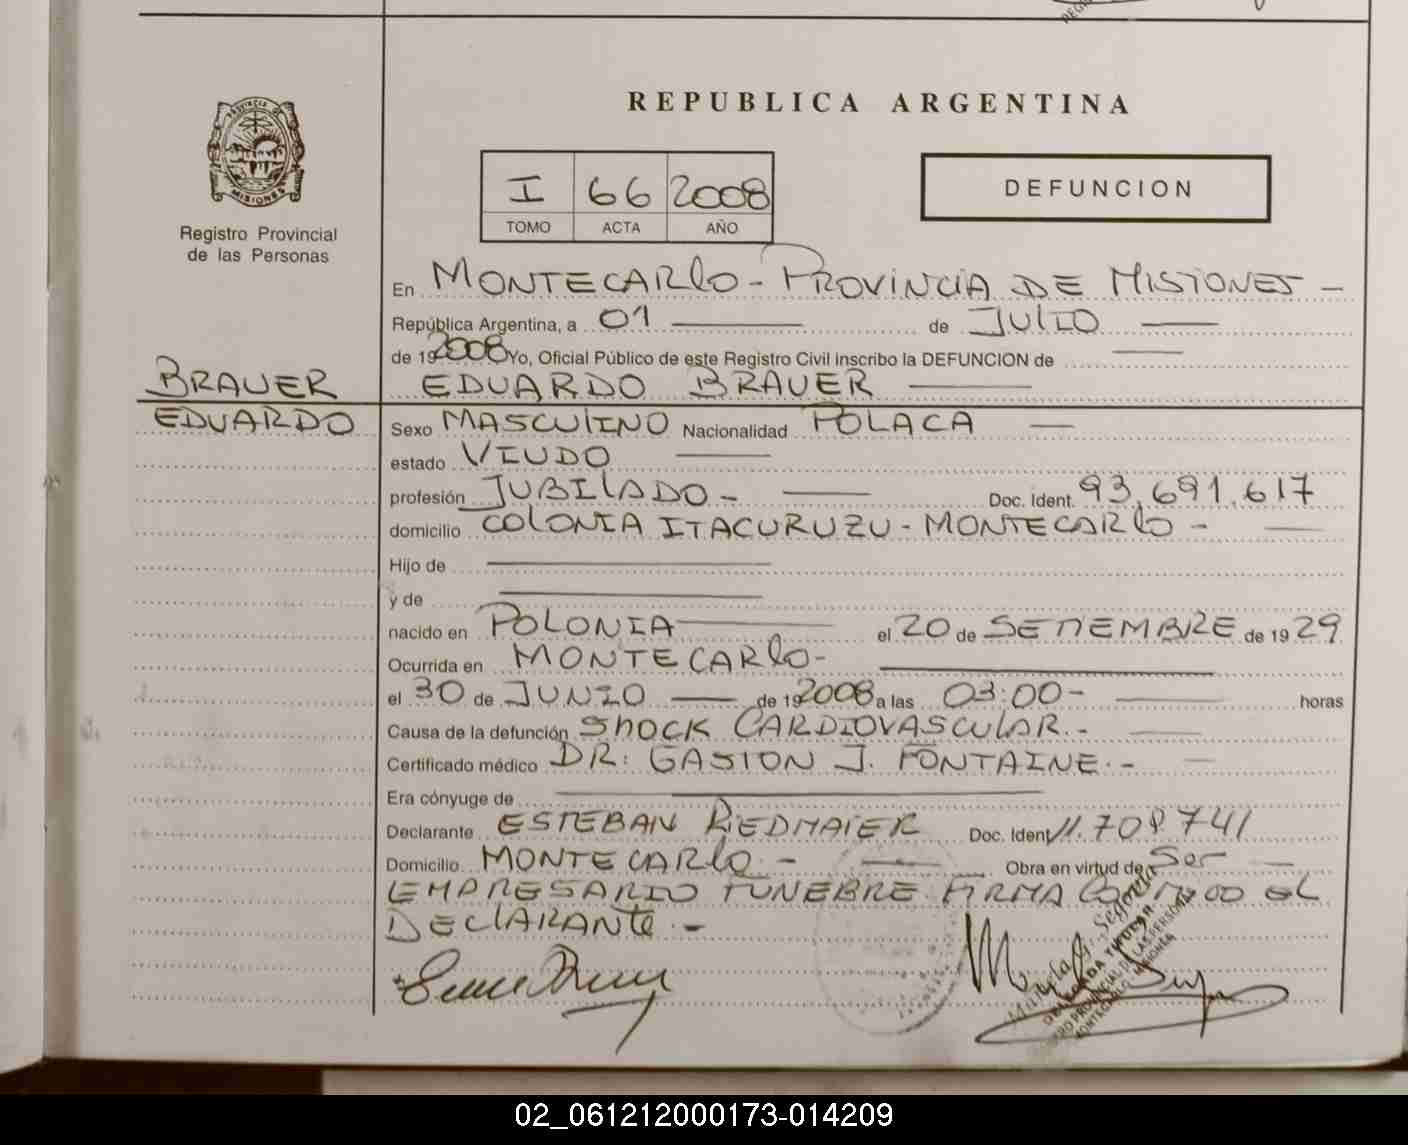 REPUBLICA ARGENTINA
PROVINCIA DE MISIONES
Registro Provincial
de las Personas
I 66 2008
TOMO ACTA AÑO
DEFUNCION
En MONTECARLO - PROVINCIA DE MISIONES -
República Argentina, a 01 de JULIO
de 19 2008 Yo, Oficial Público de este Registro Civil inscribo la DEFUNCION de
BRAUER EDUARDO BRAUER
EDUARDO
Sexo MASCULINO Nacionalidad POLACA
estado VIUDO
profesión JUBILADO - Doc. Ident. 93.691.617
domicilio COLONIA ITACURUZU - MONTECARLO -
Hijo de
y de
nacido en POLONIA el 20 de SETIEMBRE de 19 29
Ocurrida en MONTECARLO -
el 30 de JUNIO de 19 2008 a las 03:00 - horas
Causa de la defunción SHOCK CARDIOVASCULAR.-
Certificado médico DR: GASTON J. FONTAINE.-
Era cónyuge de
Declarante ESTEBAN RIEDMAIER Doc. Ident 11.708.741
Domicilio MONTECARLO.- Obra en virtud de Ser
EMPRESARIO FUNEBRE FIRMA CONMIGO EL
DECLARANTE.-
DELEGADA TITULAR
REGISTRO PROVINCIAL DE LAS PERSONAS
MONTECARLO MISIONES
02_061212000173-014209